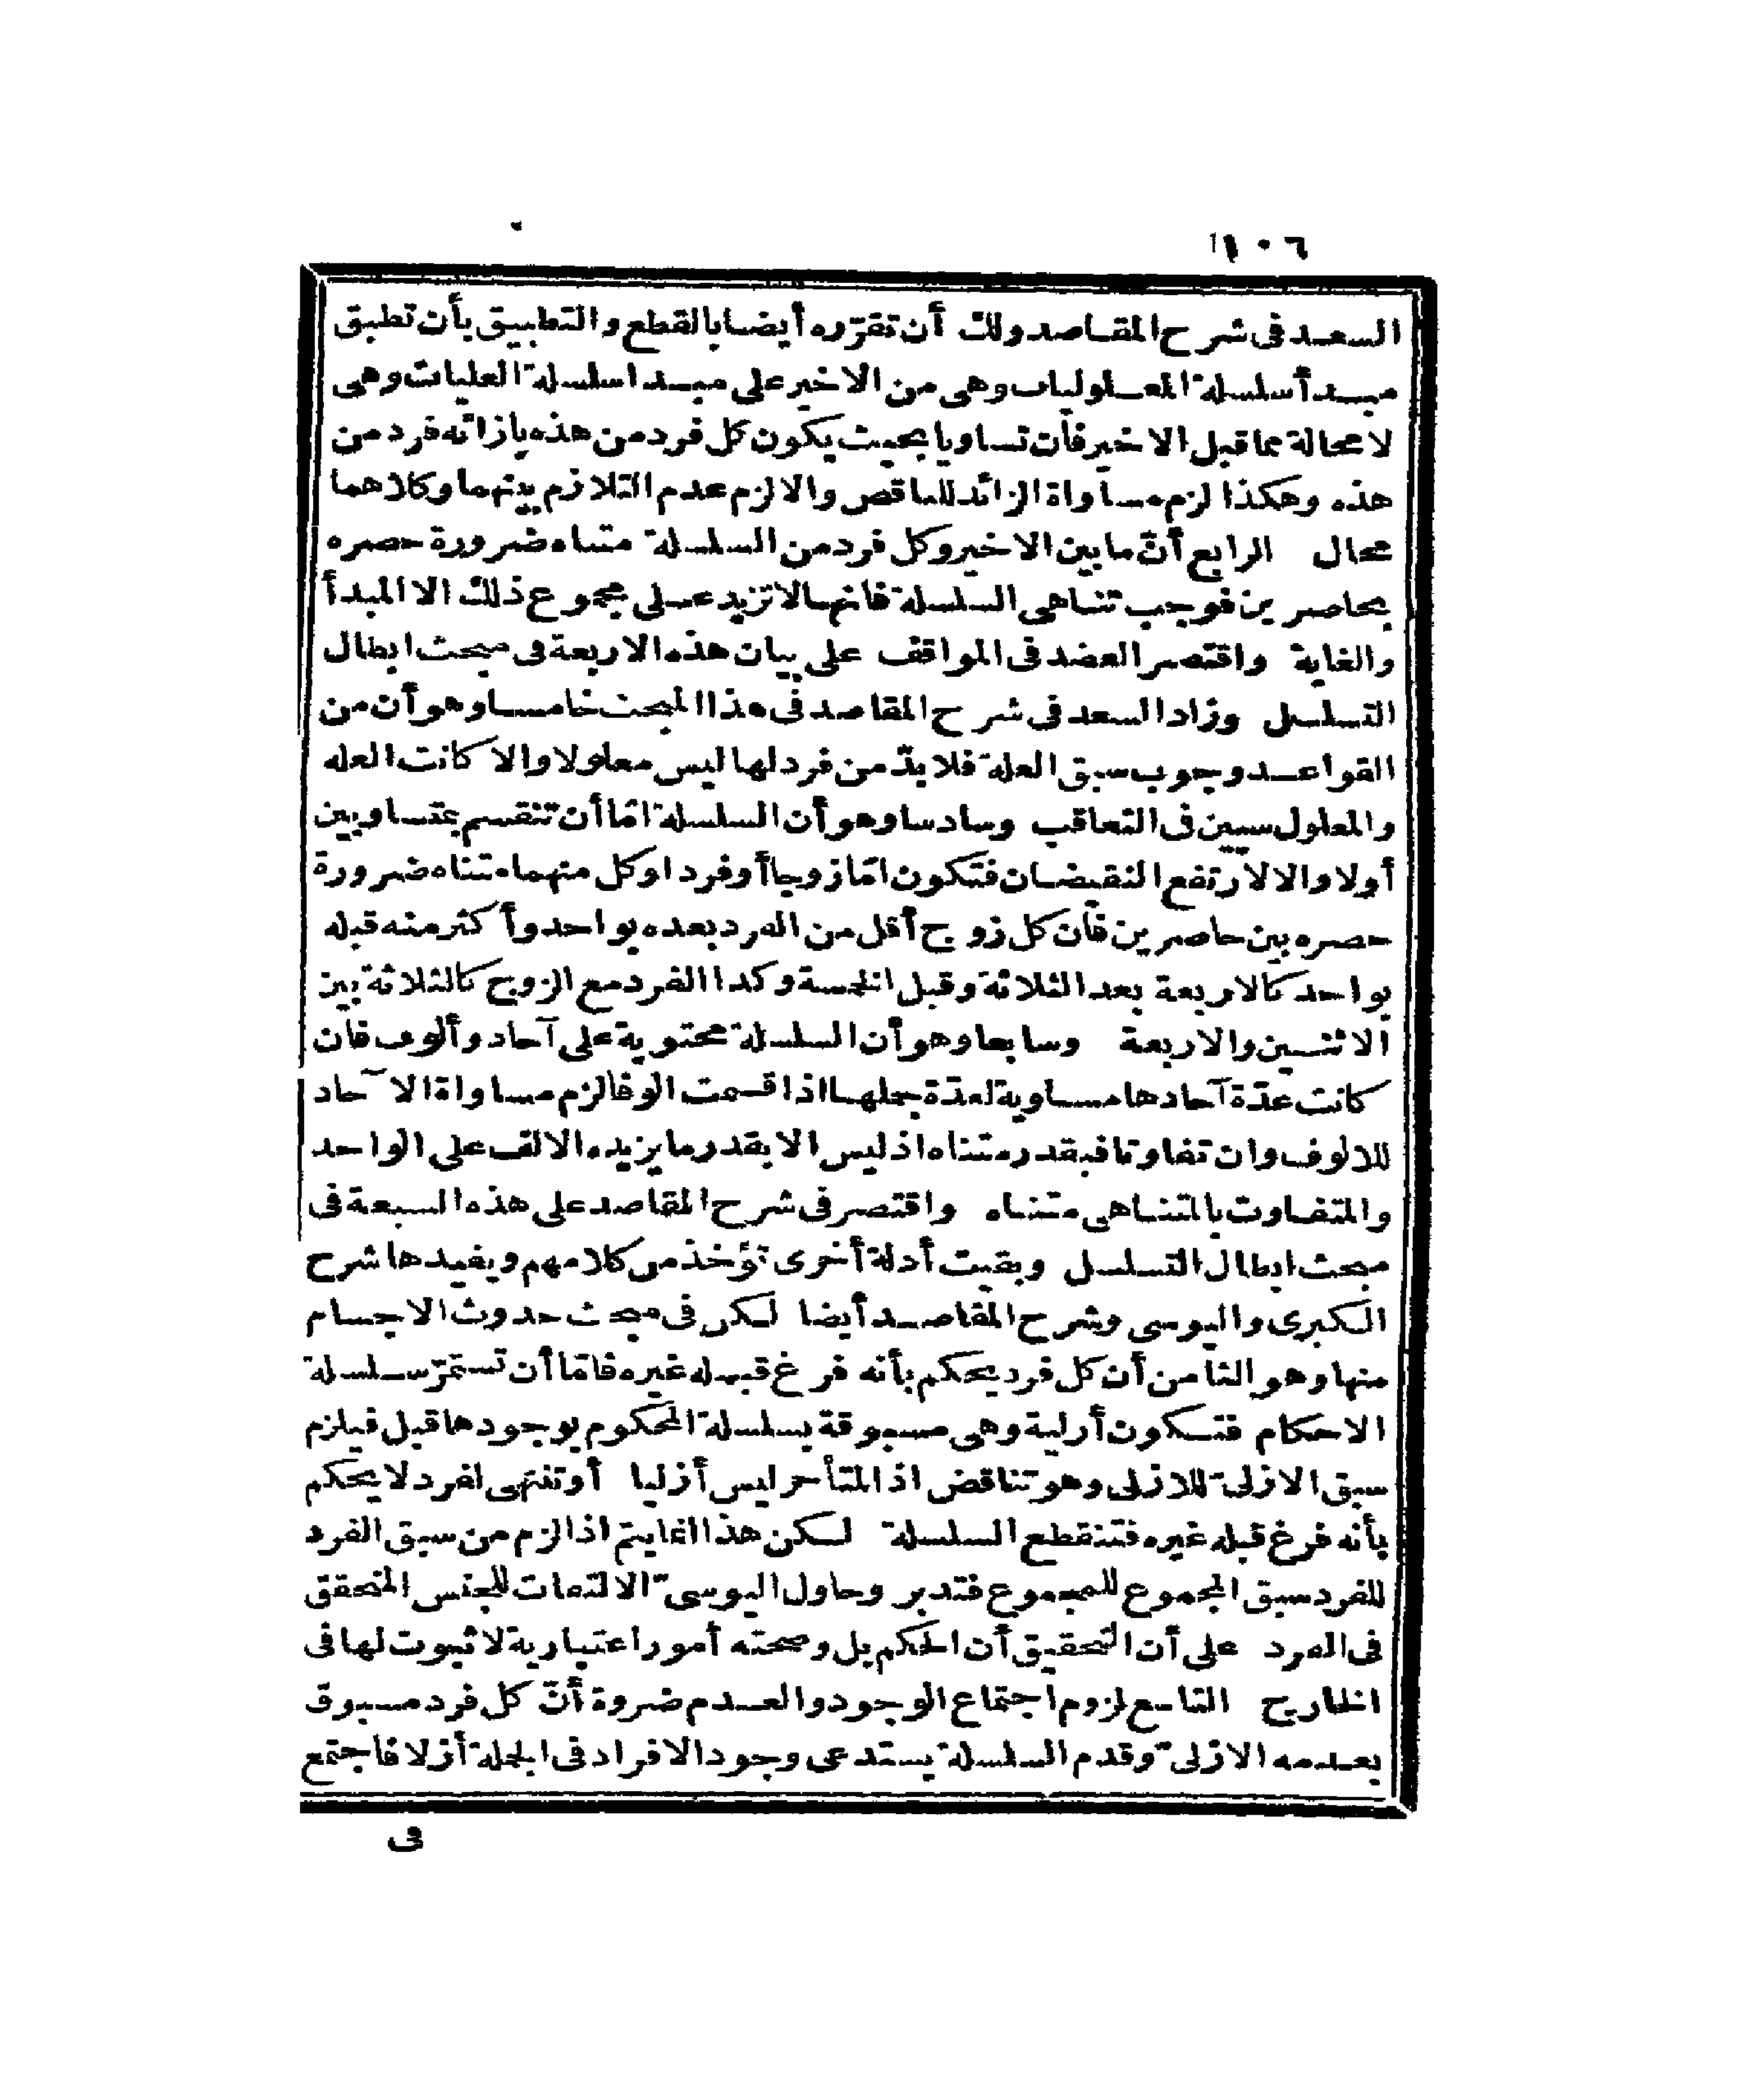 ١٠٦
السعد فى شرح المقاصد ولك أن تقرّره أيضا بالقطع والتطبيق بأن تطبق
مبدأ سلسلة المعلوليات وهى من الاخير على مبدا سلسلة العليات وهى
لا محالة مما قبل الاخير فأن تساويا بحيث يكون كل فرد من هذه بازائه فرد من
هذه وهكذا لزم مساواة الزائد للناقص والا لزم عدم التلازم بينهما وكلاهما
محال الرابع أنّ ما بين الاخير وكل فرد من السلسلة متناه ضرورة حصره
بحاصرين فوجب تناهى السلسلة فانها لا تزيد على مجموع ذلك الا المبدأ
والغاية واقتصر العضد فى المواقف على بيان هذه الاربعة فى مبحث ابطال
التسلسل وزاد السعد فى شرح المقاصد فى هذا المبحث خامسا وهو أن من
القواعد وجوب سبق العلة فلا بدّ من فرد لها ليس معلولا والا كانت العله
والمعلول سيين فى التعاقب وسادسا وهو أن السلسلة امّا أن تنقسم بمتساويين
أولا والا لارتفع النقيضان فتكون امّا زوجا أو فردا وكل منهما متناه ضرورة
حصره بين حاصرين فأن كل زوج أقل من الفرد بعده بواحد وأكثر منه قبله
بواحد كالاربعة بعد الثلاثة وقبل الخمسة وكذا الفرد مع الزوج كالثلاثة بين
الاثنين والاربعة وسابعا وهو أن السلسلة محتوية على آحاد وألوف فان
كانت عدّة آحادها مساوية لعدّة جملها اذا قسمت الوفا لزم مساواة الآحاد
للالوف وان تفاوتا فبقدر متناه اذ ليس الا بقدر ما يزيده الالف على الواحد
والمتفاوت بالمتناهى متناه واقتصر فى شرح المقاصد على هذه السبعة فى
مبحث ابطال التسلسل وبقيت أدلة أخرى تؤخذ من كلامهم ويفيدها شرح
الكبرى واليوسى وشرح المقاصد أيضا لكن فى مبحث حدوث الاجسام
منها وهو الثامن أن كل فرد يحكم بأنه فرغ قبله غيره فامّا أن تستمرّ سلسلة
الاحكام فتكون أزلية وهى مسبوقة بسلسلة المحكوم بوجودها قبل فيلزم
سبق الازلىّ للازلى وهو تناقض اذ المتأخر ليس أزليا أو تنتهى لفرد لا يحكم
بأنه فرغ قبله غيره فتنقطع السلسلة لكن هذا انما يتم اذا لزم من سبق الفرد
للفرد سبق المجموع للمجموع فتدبر وحاول اليوسىّ الالتفات للجنس المتحقق
فى الفرد على أن التحقيق أن الحكم بل وصحته أمور اعتبارية لا ثبوت لها فى
الخارج التاسع لزوم اجتماع الوجود والعدم ضروة أنّ كل فرد مسبوق
بعدمه الازلىّ وقدم السلسلة يستدعى وجود الافراد فى الجملة أزلا فاجتمع
فى